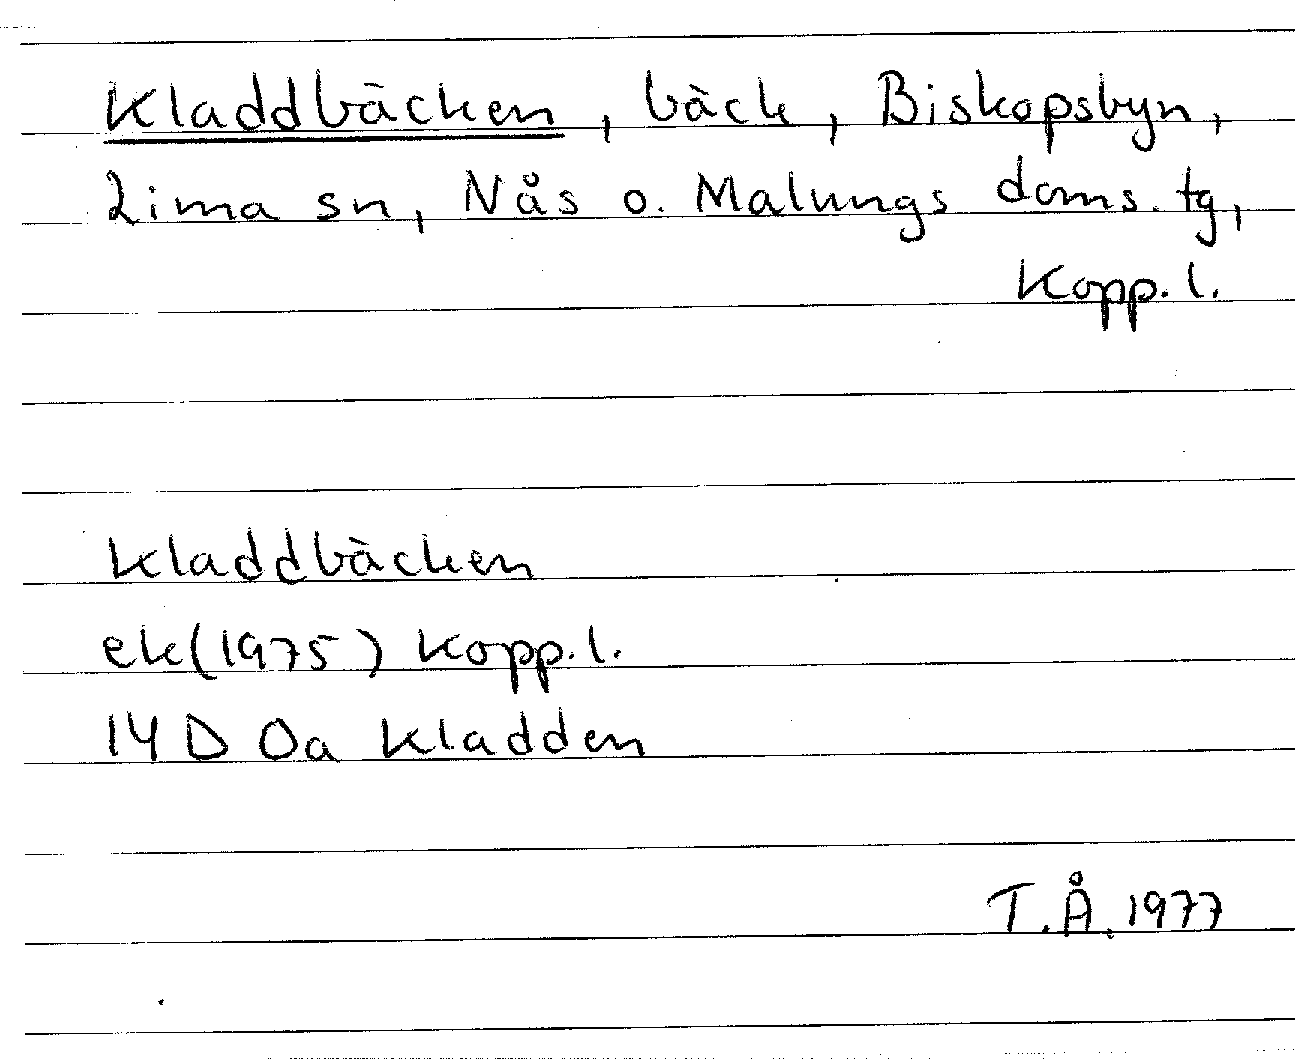 Kladdbäcken, bäck, Biskopsbyn,
Lima sn, Nås o. Malungs doms. tg,
Kopp. l.
Kladdbäcken
ek(1975) Kopp. l.
14 D 0a Kladden
T.Å. 1977